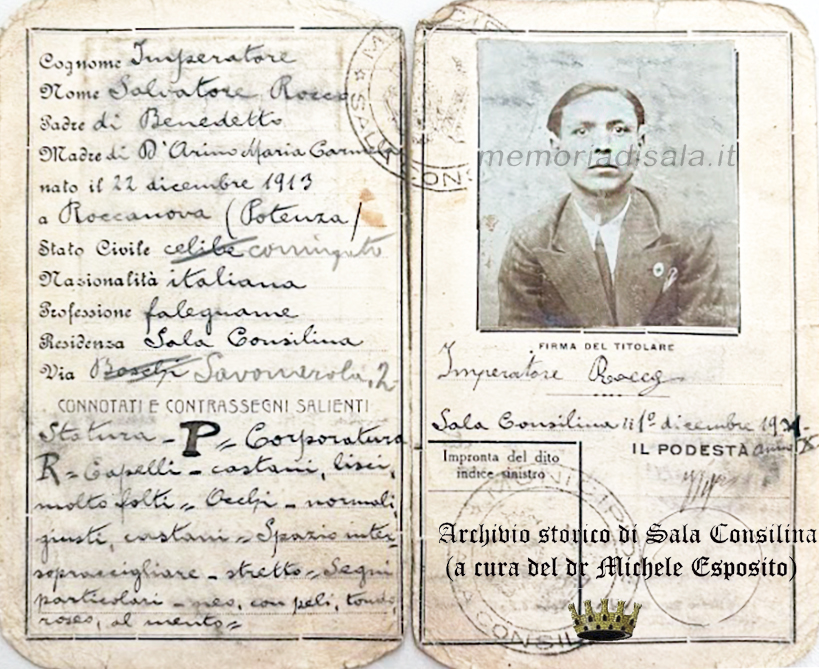 Cognome Imperatore
Nome Salvatore Rocco
Padre di Benedetto
Madre di D'Arino Maria Carmela
nato il 22 dicembre 1913
a Roccanova (Potenza)
Stato Civile celibe coniugato
Nazionalità italiana
Professione falegname
Residenza Sala Consilina
Via Boschi Savonarola, 2
CONNOTATI E CONTRASSEGNI SALIENTI
Statura - P = Corporatura
R = Capelli - castani, lisci,
molto folti = Occhi - normali,
giusti, castani = Spazio inter-
sopraccigliare - stretto = Segni
particolari - neo, con peli, tondo,
roseo, al mento =
memoriadisala.it
FIRMA DEL TITOLARE
Imperatore Rocco
Sala Consilina li 1º dicembre 1931
IL PODESTÀ anno X
Impronta del dito
indice sinistro
Archivio storico di Sala Consilina
(a cura del dr Michele Esposito)